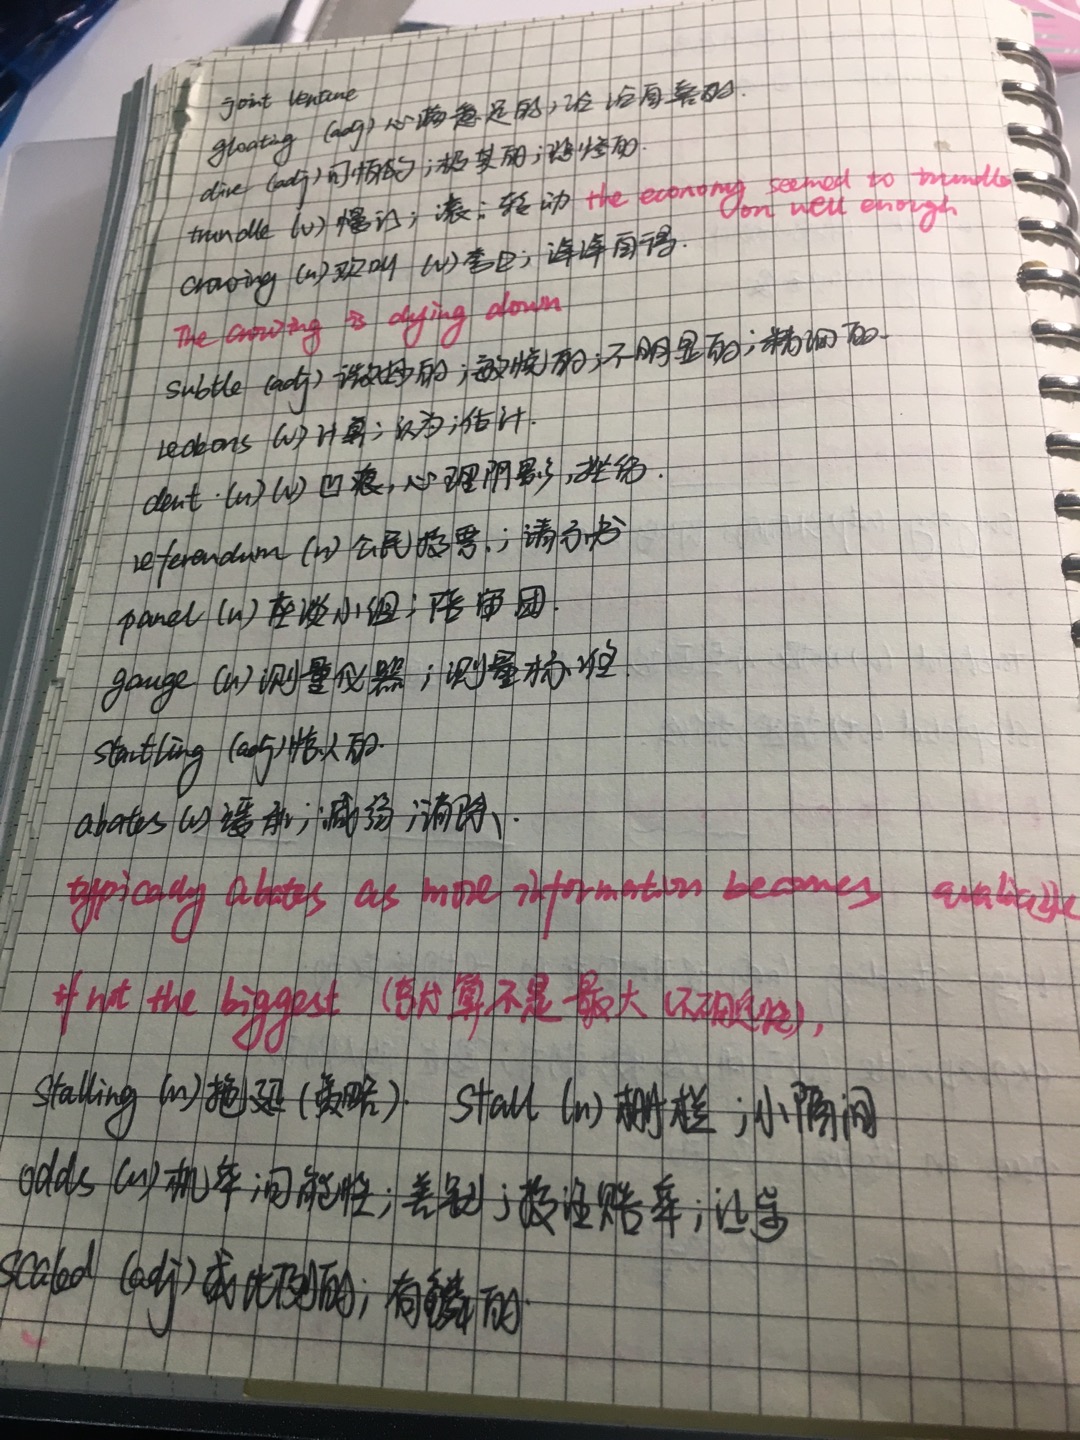 joint venture
gloating (adj) 心满意足的；沾沾自喜的.
dire (adj) 可怕的；极其的；悲惨的.
trundle (v) 慢行；滚；转动 the economy seemed to trundle
on well enough
crowing (n) 欢叫 (v) 夸口；洋洋自得.
The crowing is dying down
subtle (adj) 微妙的；敏锐的；不明显的；精细的.
reckons (v) 计算；认为；估计.
dent (n) (v) 凹痕，心理阴影，挫伤.
referendum (n) 公民投票；请示书
panel (n) 座谈小组；陪审团.
gauge (n) 测量仪器；测量标准.
startling (adj) 惊人的.
abates (v) 缓和；减弱；消除、.
typically abates as more information becomes
if not the biggest (就算不是最大(不确定性)),
Stalling (n) 拖延(策略). Stall (n) 栅栏；小隔间
odds (n) 机率；可能性；差别；投注赔率；让步
scaled (adj) 成比例的；有鳞的.